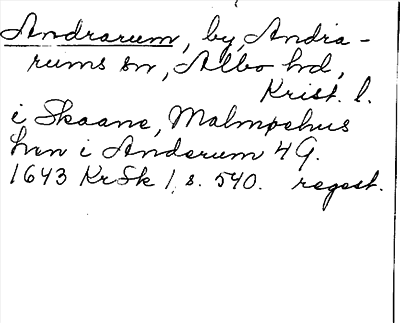 Andrarum, by, Andra-
rums sn, Albo hd,
Krist. l.
i Skaane, Malmøehus
hvn i Anderum 4 G.
1643 KrSk 1, s. 540. regest.